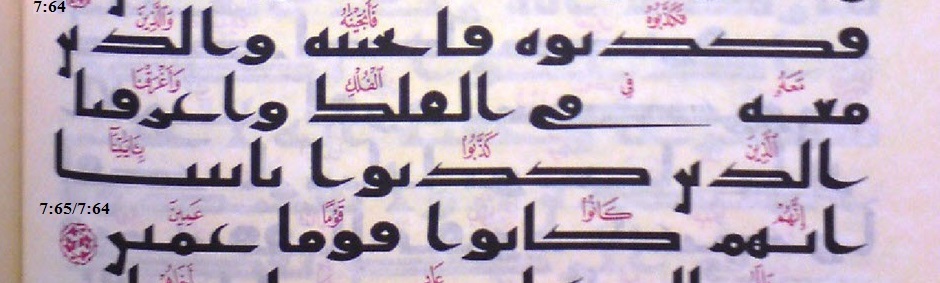 7:64
فَكَذَّبُوهُ فَأَنجَيْنَٰهُ وَالَّذِينَ
فكذبوه فانجينه والذين
مَعَهُ فِي الْفُلْكِ وَأَغْرَقْنَا
معه في الفلك واغرقنا
الَّذِينَ كَذَّبُوا بِـَٔايَٰتِنَآ
الذين كذبوا باىتنا
7:65/7:64
إِنَّهُمْ كَانُوا قَوْمًا عَمِينَ
انهم كانوا قوما عمين